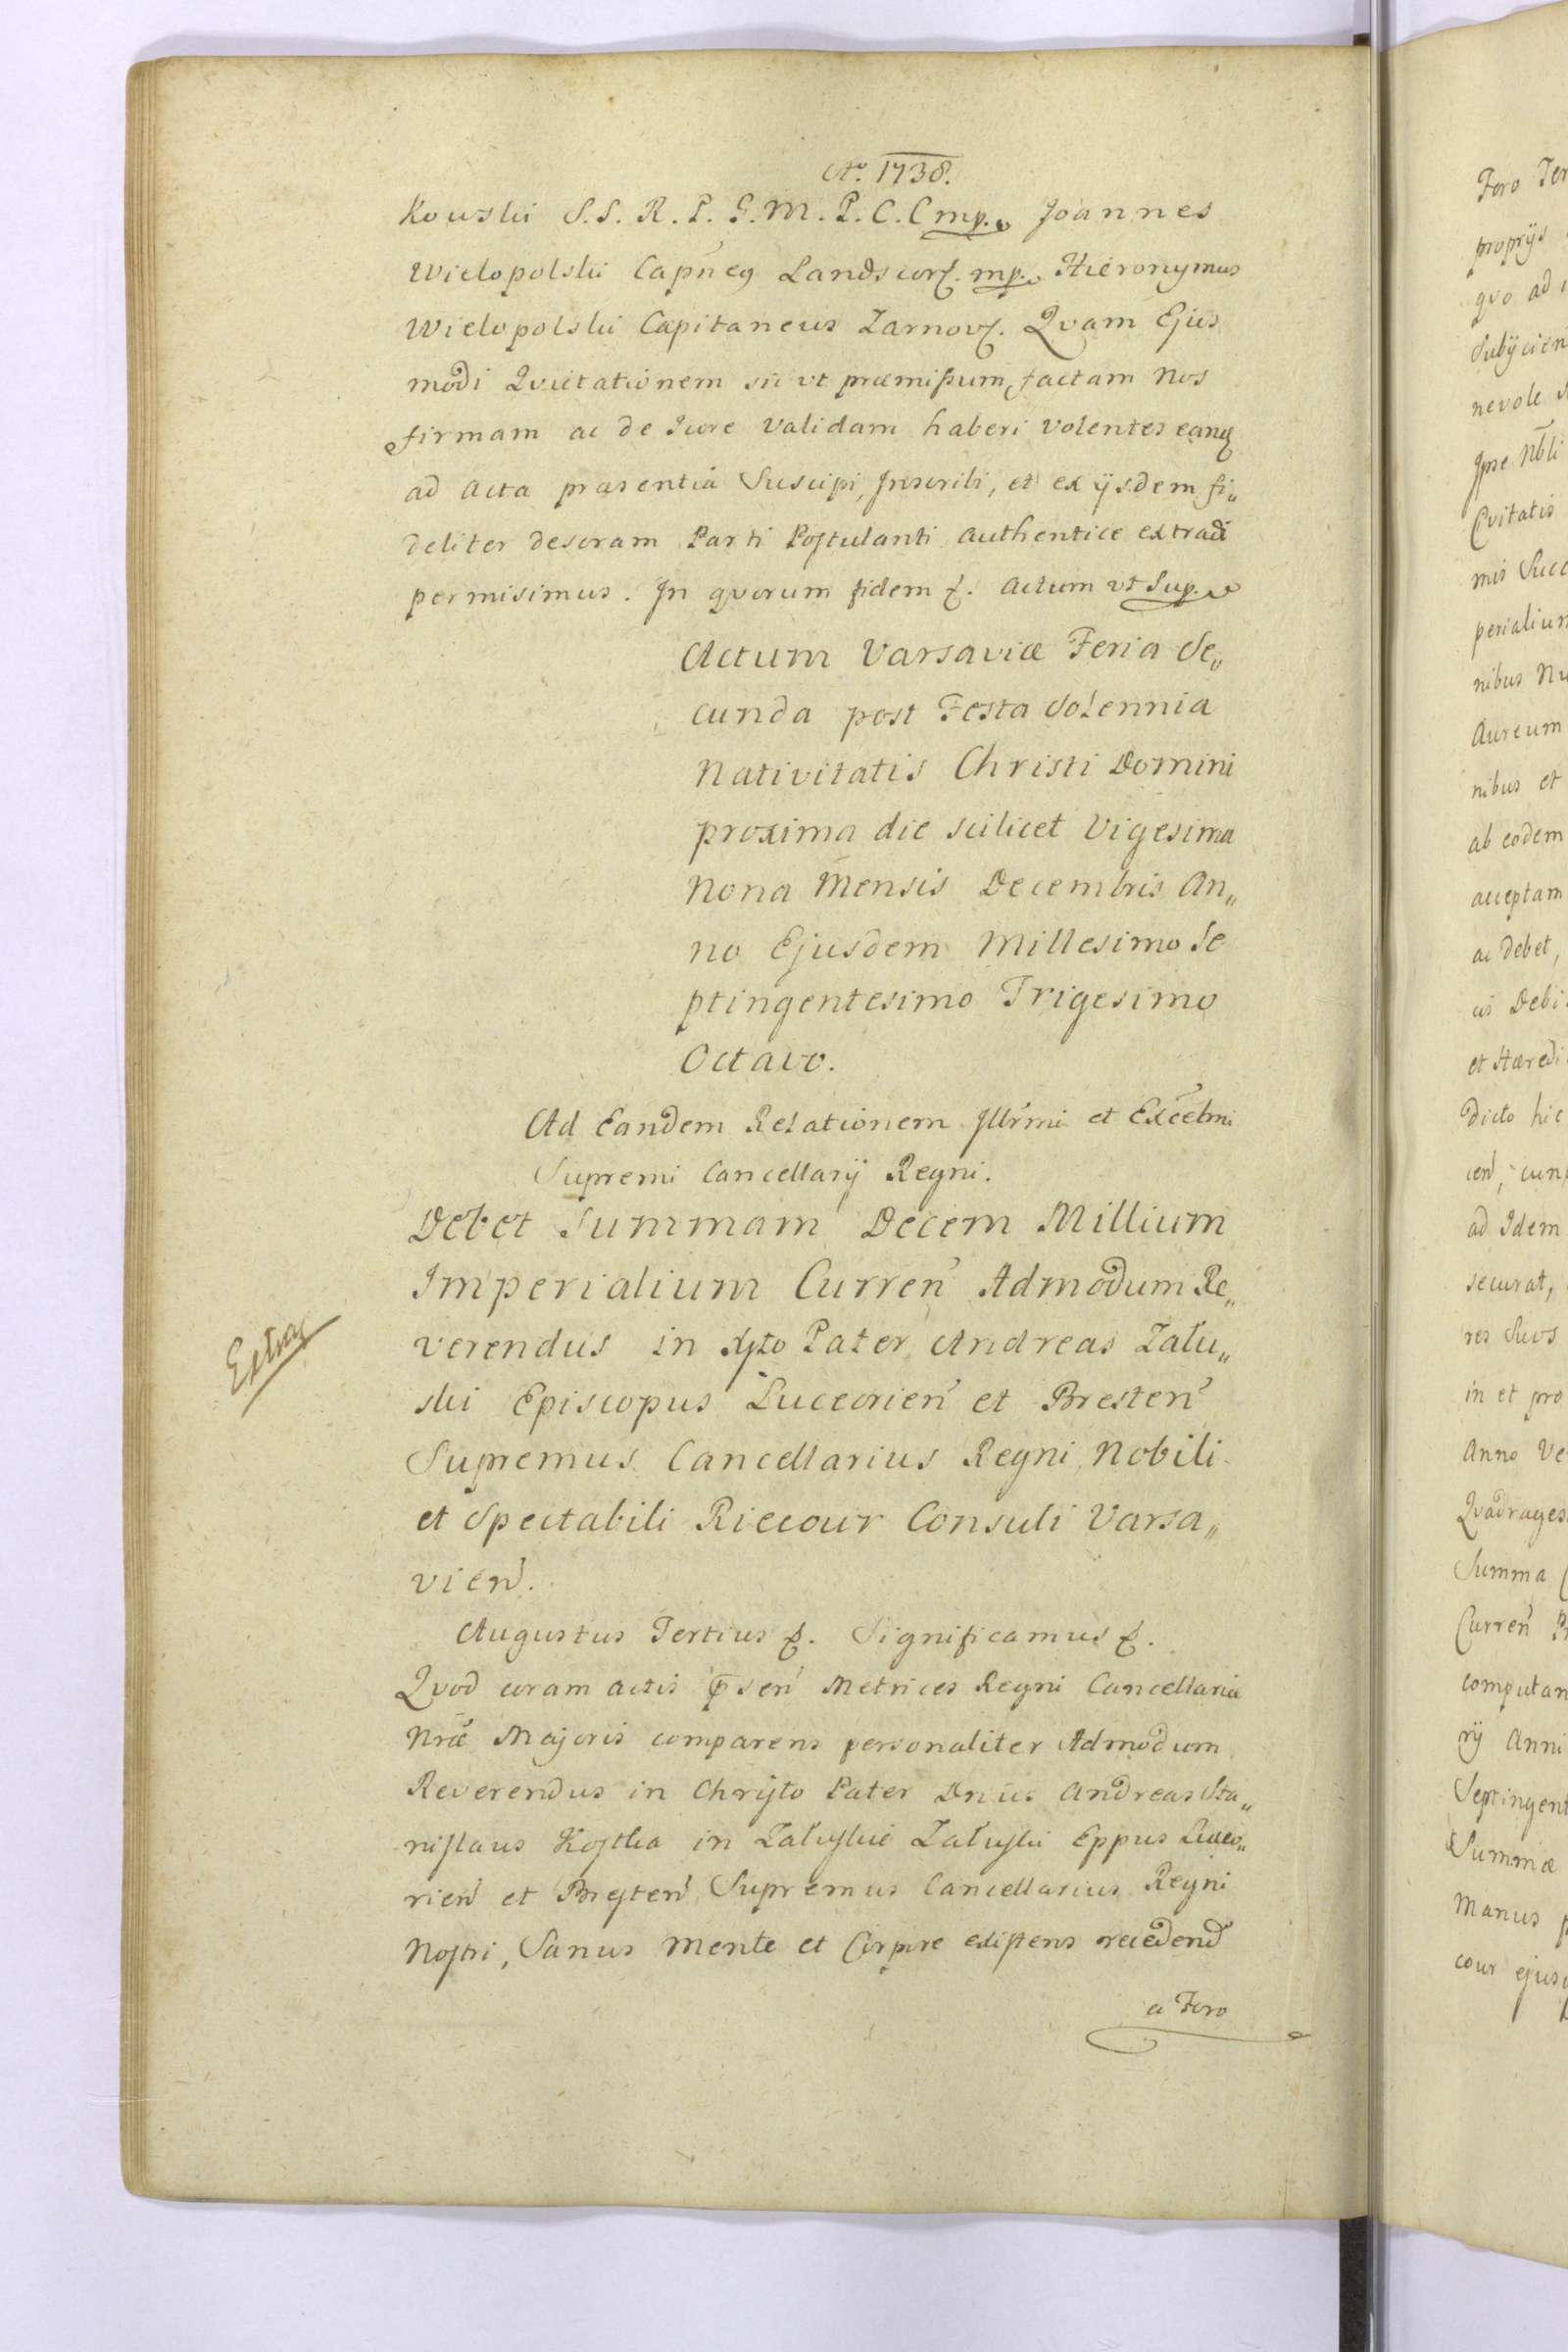 Ao. 1738.
Kowski S.S.R.P.G.M.P.C.C mp. Joannes
Wielopolski Capneus Landscor. mp. Hieronymus
Wielopolski Capitaneus Zarnov. Qvam Ejus
modi Qvietationem sic vt præmissum, factam Nos
firmam ac de Jure Validam haberi volentes eamq
ad Acta præsentia Suscipi, Inscribi, et ex ijsdem fi„
deliter descram Parti Postulanti authentice extradi
permisimus. In qvorum fidem &. Actum vt Sup.
Actum Varsaviæ Feria Se„
cunda post Festa Solennia
Nativitatis Christi Domini
proxima die scilicet Vigesima
Nona Mensis Decembris An„
no Ejusdem Millesimo Se
ptingentesimo Trigesimo
Octavo.
Ad Eandem Relationem Illrmi et Excelmi
Supremi Cancellarij Regni.
Debet Summam Decem Millium
Imperialium Curren Admodum Re„
verendus in Xpto Pater Andreas Zału„
ski Episcopus Luceorien et Bresten
Supremus Cancellarius Regni Nobili
et Spectabili Riecour Consuli Varsa„
vien.
Extrac
Augustus Tertius &. Significamus &.
Qvod coram actis psen Metrices Regni Cancellariæ
Nræ Majoris comparens personaliter Admodum
Reverendus in Christo Pater Dnus Andreas Sta„
nislaus Kostka in Załuskie Załuski Eppus Luceo„
rien et Bresten Supremus Cancellarius Regni
Nostri, Sanus Mente et Corpore existens recedend
a Foro
Foro
proprijs
qvo ad
Subijcien
nevole
Ipse Nbli
Civitatis
mis Succ
perialium
nibus Nu
Aureum
nibus et
ab eodem
acceptam
ac debet,
cis Debi
et Hæredi
dicto hic
cen, cum
ad Idem
securat,
res Suos
in et pro
Anno Ve
Qvadrages
Summa
Curren
computan
rij Anni
Septingent
Summæ
Manus
cour ejus